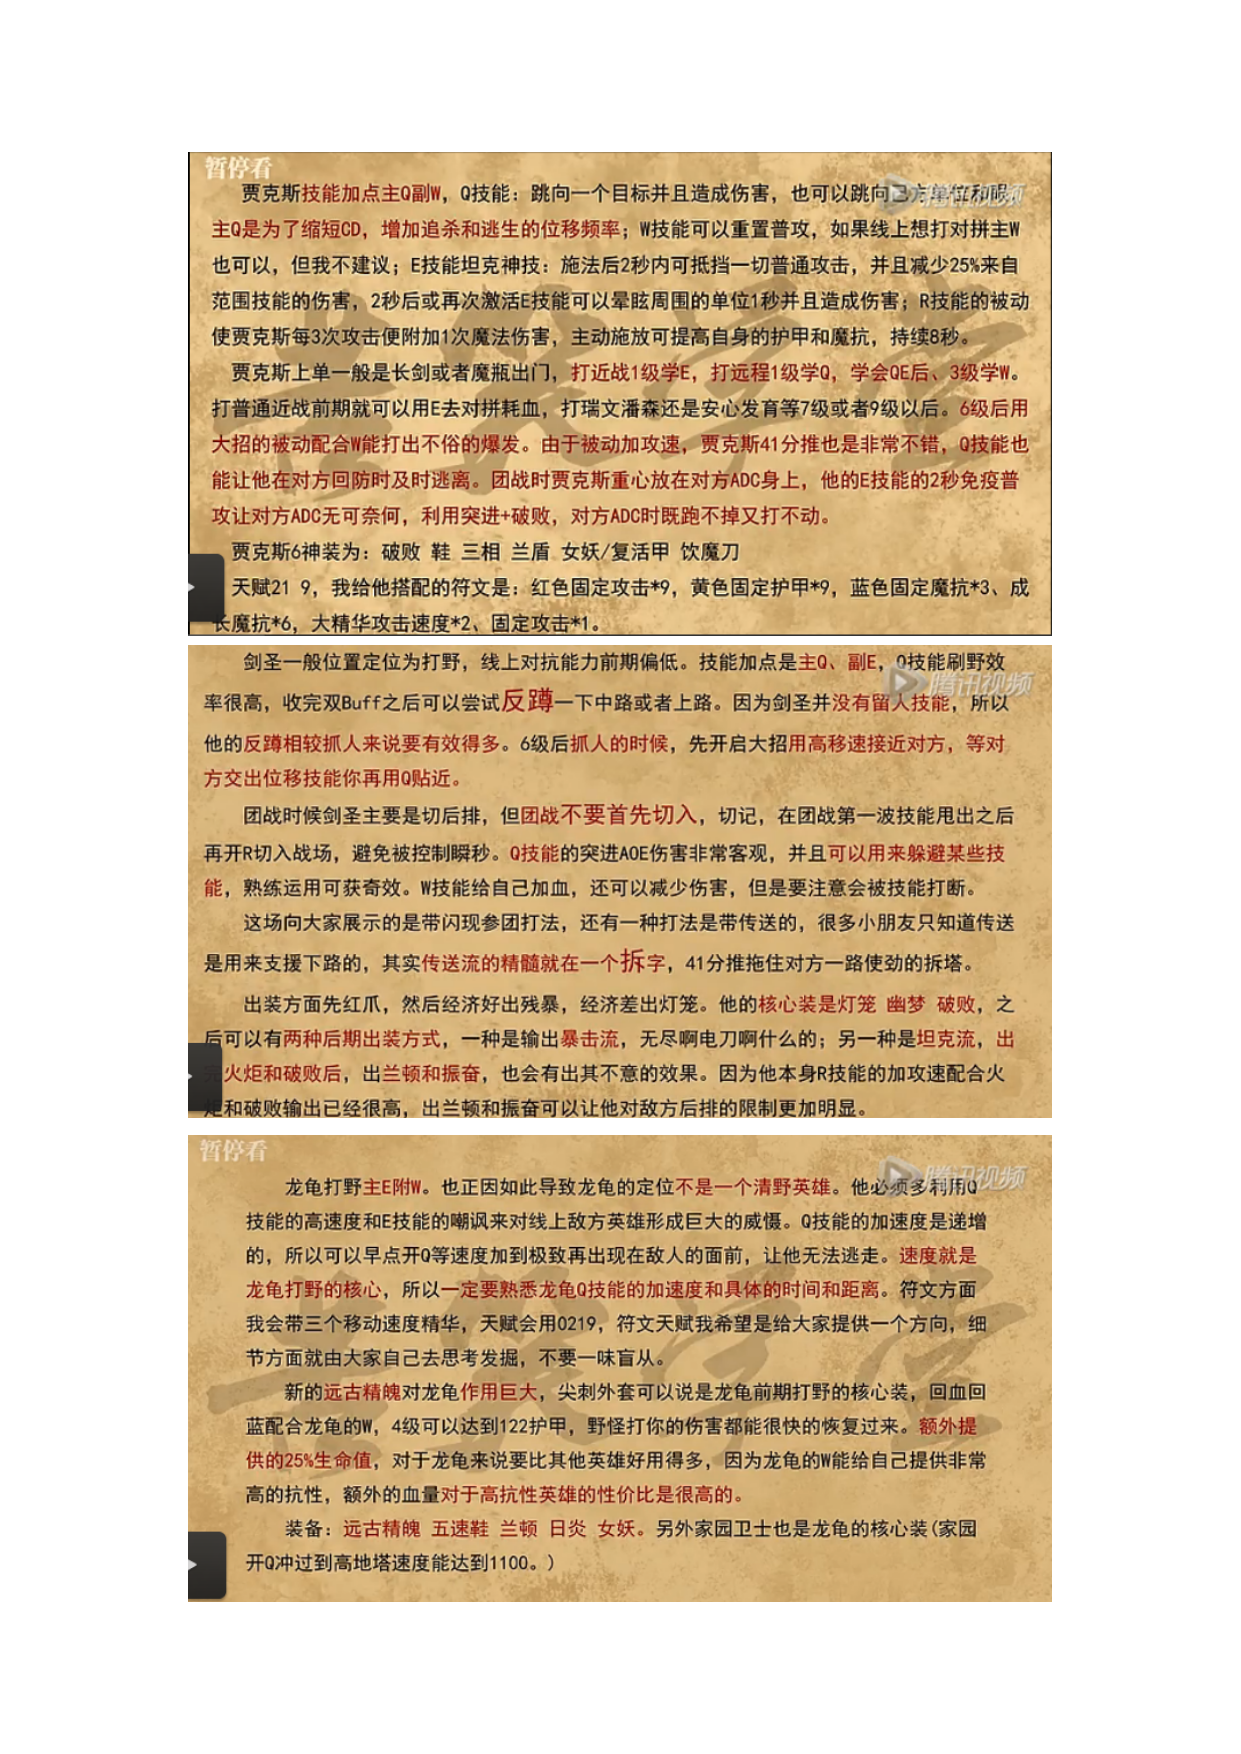 暂停看
腾讯视频
贾克斯技能加点主Q副W，Q技能：跳向一个目标并且造成伤害，也可以跳向己方单位和眼
主Q是为了缩短CD，增加追杀和逃生的位移频率；W技能可以重置普攻，如果线上想打对拼主W
也可以，但我不建议；E技能坦克神技：施法后2秒内可抵挡一切普通攻击，并且减少25%来自
范围技能的伤害，2秒后或再次激活E技能可以晕眩周围的单位1秒并且造成伤害；R技能的被动
使贾克斯每3次攻击便附加1次魔法伤害，主动施放可提高自身的护甲和魔抗，持续8秒。
贾克斯上单一般是长剑或者魔瓶出门，打近战1级学E，打远程1级学Q，学会QE后、3级学W。
打普通近战前期就可以用E去对拼耗血，打瑞文潘森还是安心发育等7级或者9级以后。6级后用
大招的被动配合W能打出不俗的爆发。由于被动加攻速，贾克斯41分推也是非常不错，Q技能也
能让他在对方回防时及时逃离。团战时贾克斯重心放在对方ADC身上，他的E技能的2秒免疫普
攻让对方ADC无可奈何，利用突进+破败，对方ADC时既跑不掉又打不动。
贾克斯6神装为：破败 鞋 三相 兰盾 女妖/复活甲 饮魔刀
天赋21 9，我给他搭配的符文是：红色固定攻击*9，黄色固定护甲*9，蓝色固定魔抗*3、成
长魔抗*6，大精华攻击速度*2、固定攻击*1。
剑圣一般位置定位为打野，线上对抗能力前期偏低。技能加点是主Q、副E，Q技能刷野效
腾讯视频
率很高，收完双Buff之后可以尝试反蹲一下中路或者上路。因为剑圣并没有留人技能，所以
他的反蹲相较抓人来说要有效得多。6级后抓人的时候，先开启大招用高移速接近对方，等对
方交出位移技能你再用Q贴近。
团战时候剑圣主要是切后排，但团战不要首先切入，切记，在团战第一波技能甩出之后
再开R切入战场，避免被控制瞬秒。Q技能的突进AOE伤害非常客观，并且可以用来躲避某些技
能，熟练运用可获奇效。W技能给自己加血，还可以减少伤害，但是要注意会被技能打断。
这场向大家展示的是带闪现参团打法，还有一种打法是带传送的，很多小朋友只知道传送
是用来支援下路的，其实传送流的精髓就在一个拆字，41分推拖住对方一路使劲的拆塔。
出装方面先红爪，然后经济好出残暴，经济差出灯笼。他的核心装是灯笼 幽梦 破败，之
后可以有两种后期出装方式，一种是输出暴击流，无尽啊电刀啊什么的；另一种是坦克流，出
完火炬和破败后，出兰顿和振奋，也会有出其不意的效果。因为他本身R技能的加攻速配合火
炬和破败输出已经很高，出兰顿和振奋可以让他对敌方后排的限制更加明显。
暂停看
腾讯视频
龙龟打野主E附W。也正因如此导致龙龟的定位不是一个清野英雄。他必须多利用Q
技能的高速度和E技能的嘲讽来对线上敌方英雄形成巨大的威慑。Q技能的加速度是递增
的，所以可以早点开Q等速度加到极致再出现在敌人的面前，让他无法逃走。速度就是
龙龟打野的核心，所以一定要熟悉龙龟Q技能的加速度和具体的时间和距离。符文方面
我会带三个移动速度精华，天赋会用0219，符文天赋我希望是给大家提供一个方向，细
节方面就由大家自己去思考发掘，不要一味盲从。
新的远古精魄对龙龟作用巨大，尖刺外套可以说是龙龟前期打野的核心装，回血回
蓝配合龙龟的W，4级可以达到122护甲，野怪打你的伤害都能很快的恢复过来。额外提
供的25%生命值，对于龙龟来说要比其他英雄好用得多，因为龙龟的W能给自己提供非常
高的抗性，额外的血量对于高抗性英雄的性价比是很高的。
装备：远古精魄 五速鞋 兰顿 日炎 女妖。另外家园卫士也是龙龟的核心装(家园
开Q冲过到高地塔速度能达到1100。)